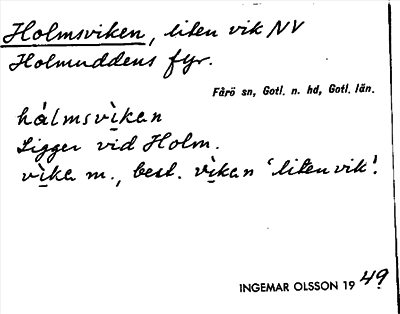 Holmsviken, liten vik NV
Holmuddens fyr.
Fårö sn, Gotl. n. hd, Gotl. län.
hálmsvìkan
Ligger vid Holm.
vìka m., best. vìkan 'liten vik'.
INGEMAR OLSSON 1949